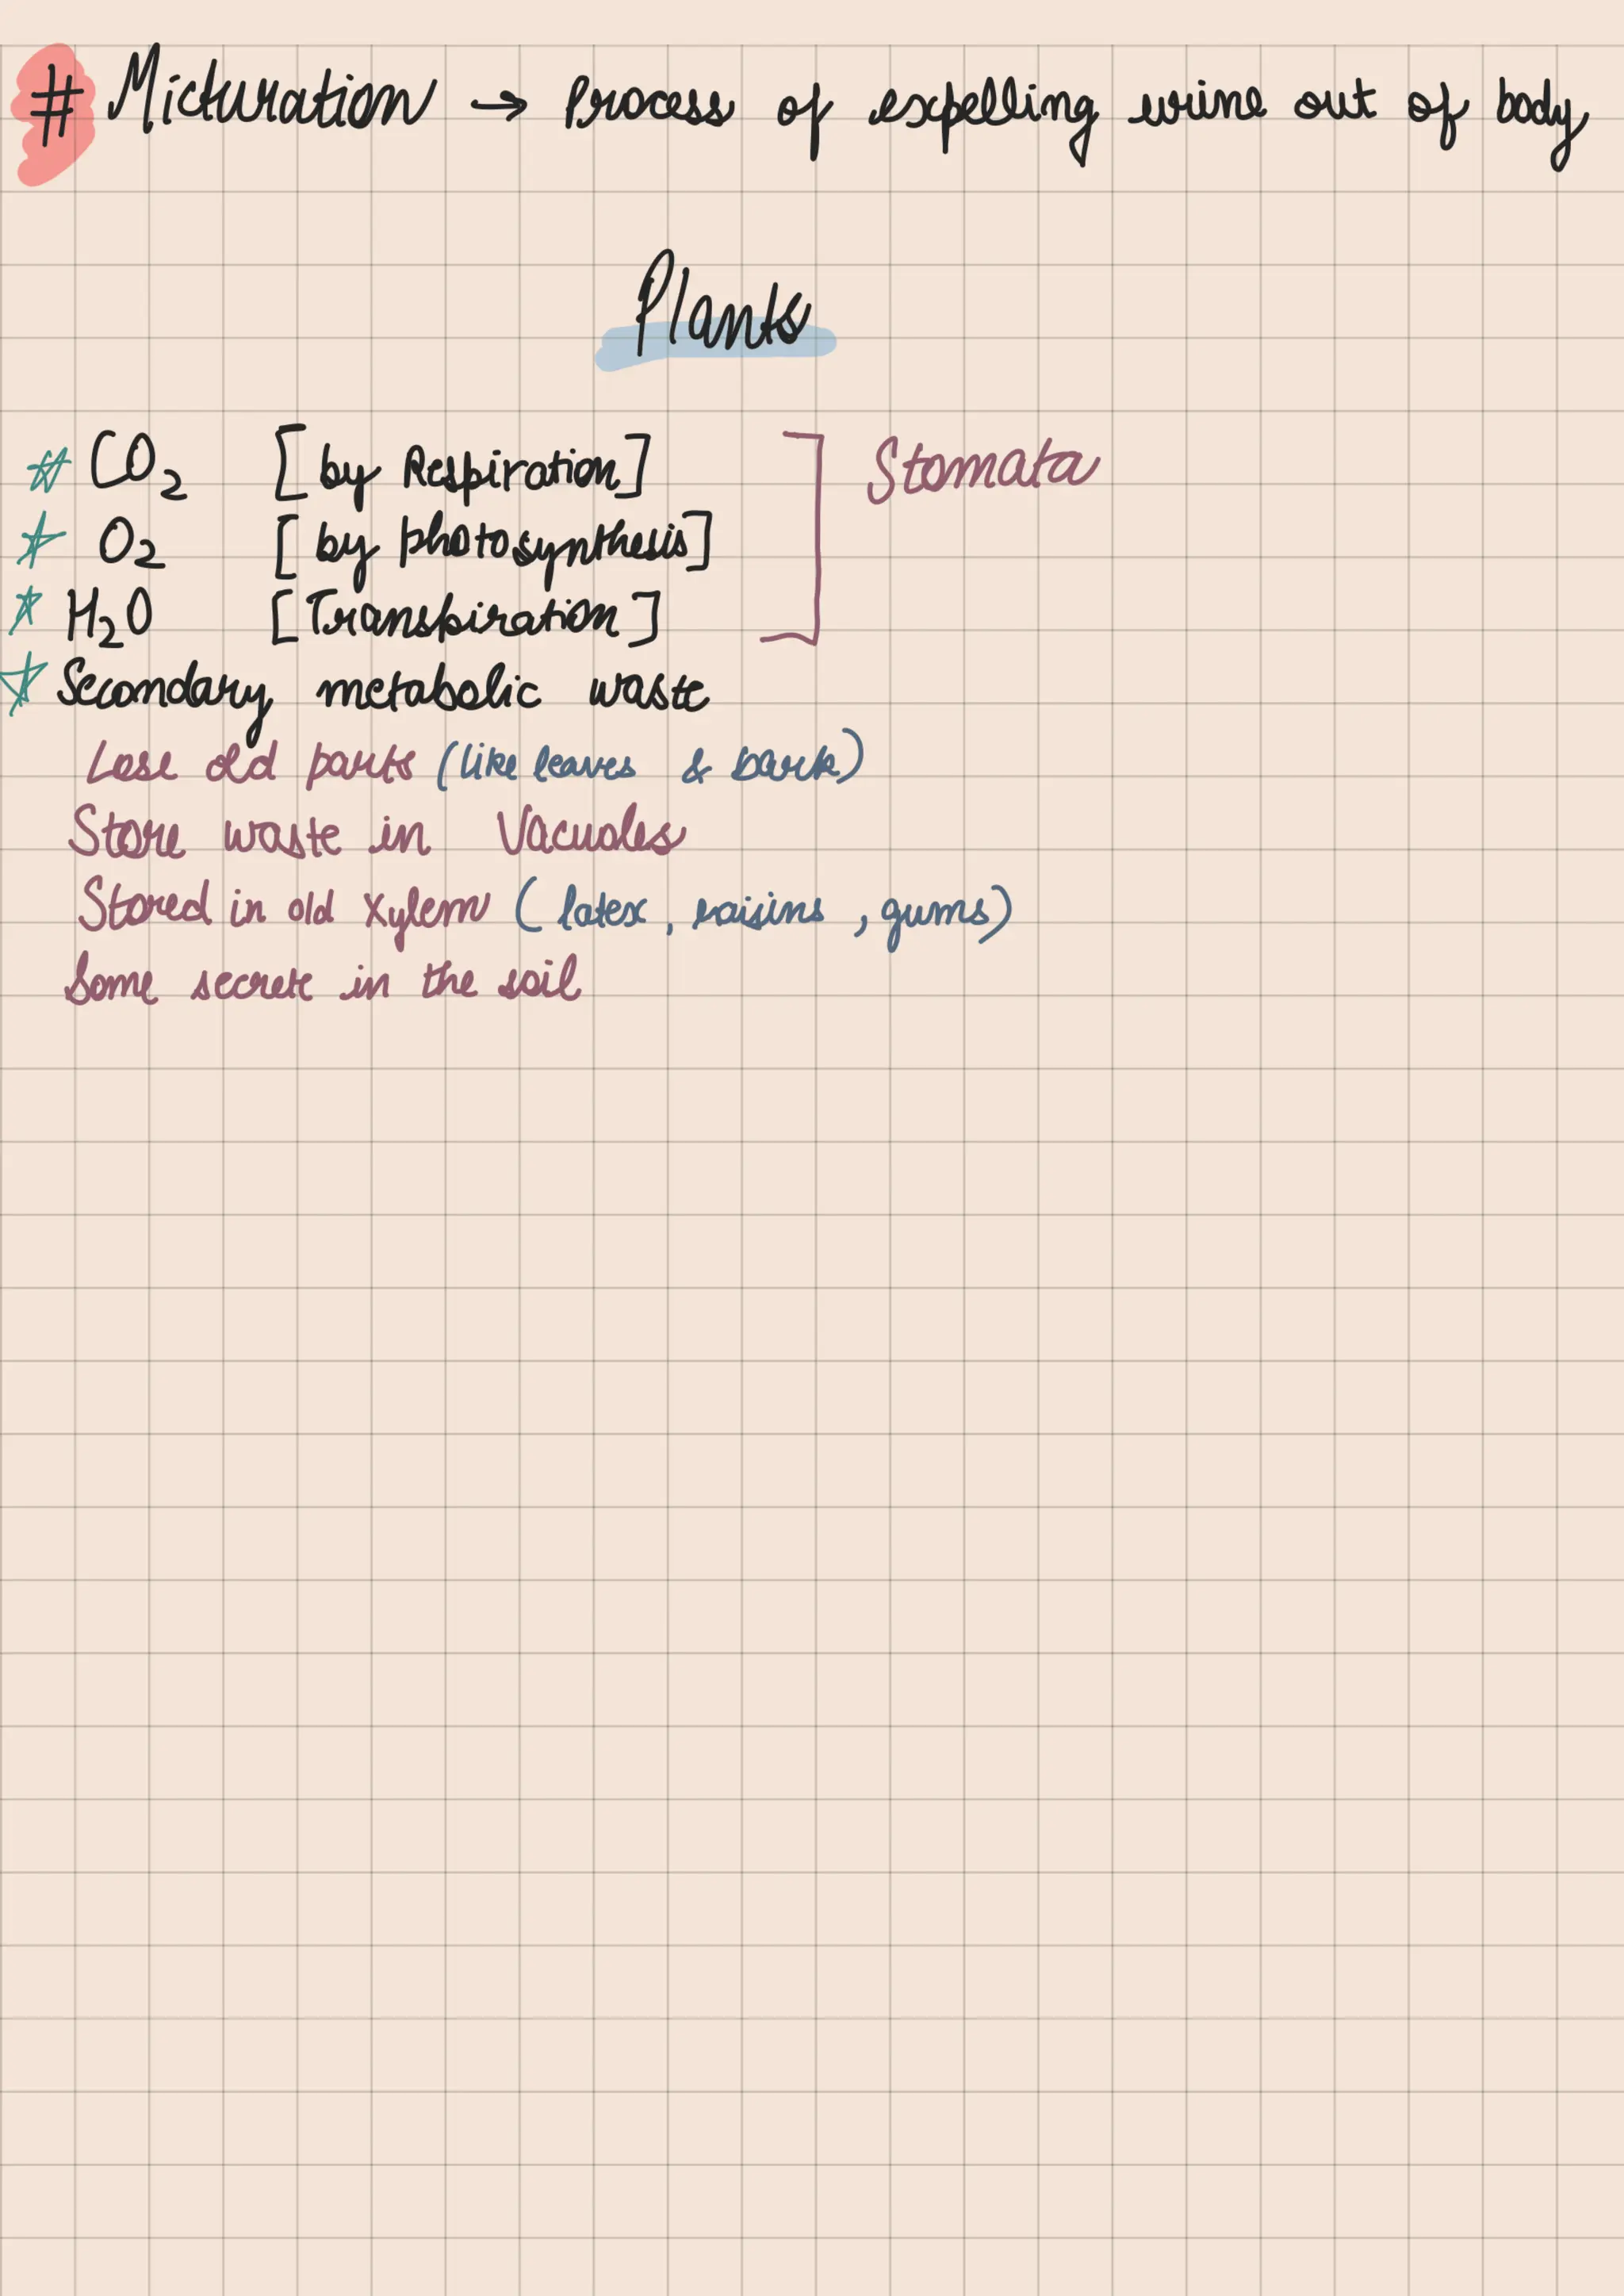 # Micturation → Process of expelling urine out of body
Plants
* CO₂ [by Respiration] Stomata
* O₂ [by photosynthesis]
* H₂O [Transpiration]
* Secondary metabolic waste
Lose old parts (like leaves & bark)
Store waste in Vacuoles
Stored in old Xylem (latex, raisins, gums)
Some secrete in the soil